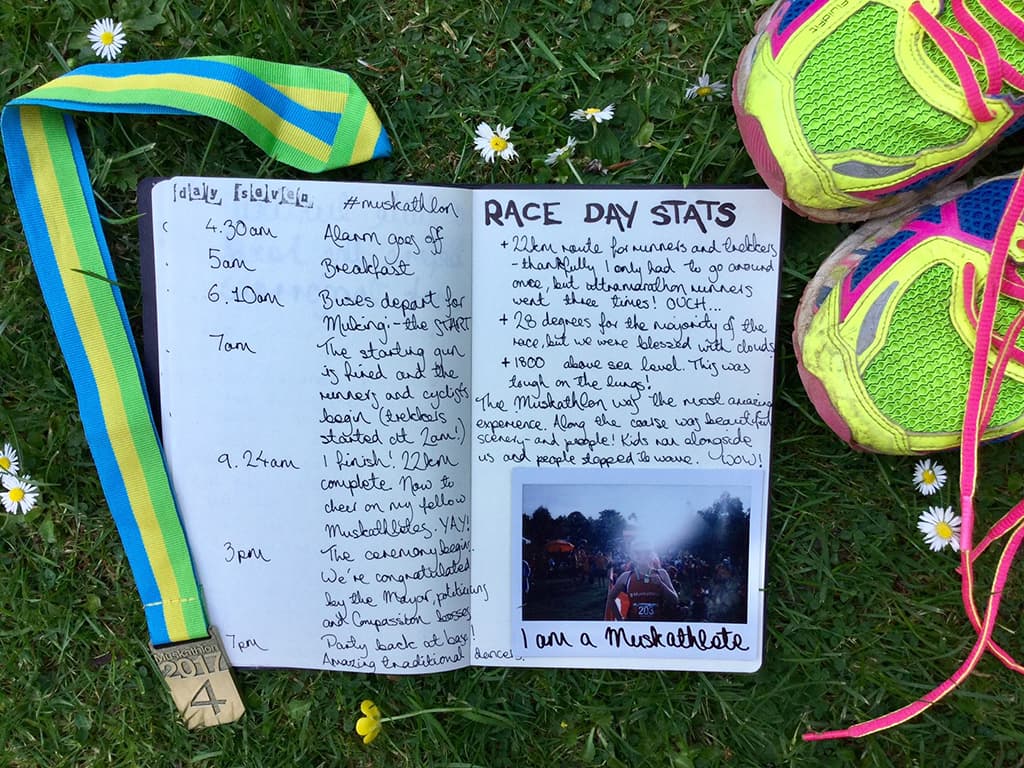 day seven
#muskathlon
4.30am Alarm goes off
5am Breakfast
6.10am Buses depart for
Muking - the START
7am The starting gun
is fired and the
runners and cyclists
begin (trekkers
started at 2am!)
9.24am I finish! 22km
complete. Now to
cheer on my fellow
Muskathletes. YAY!
3pm The ceremony begins.
We're congratulated
by the Mayor, politicians
and Compassion bosses
7pm Party back at base!
Amazing traditional dancers.
RACE DAY STATS
+ 22km route for runners and trekkers
- thankfully I only had to go around
once, but ultramarathon runners
went three times! OUCH...
+ 28 degrees for the majority of the
race, but we were blessed with clouds
+ 1800 above sea level. This was
tough on the lungs!
The Muskathlon was the most amazing
experience. Along the course was beautiful
scenery - and people! Kids ran alongside
us and people stopped to wave. WOW!
203
I am a Muskathlete
Muskathlon
2017
4